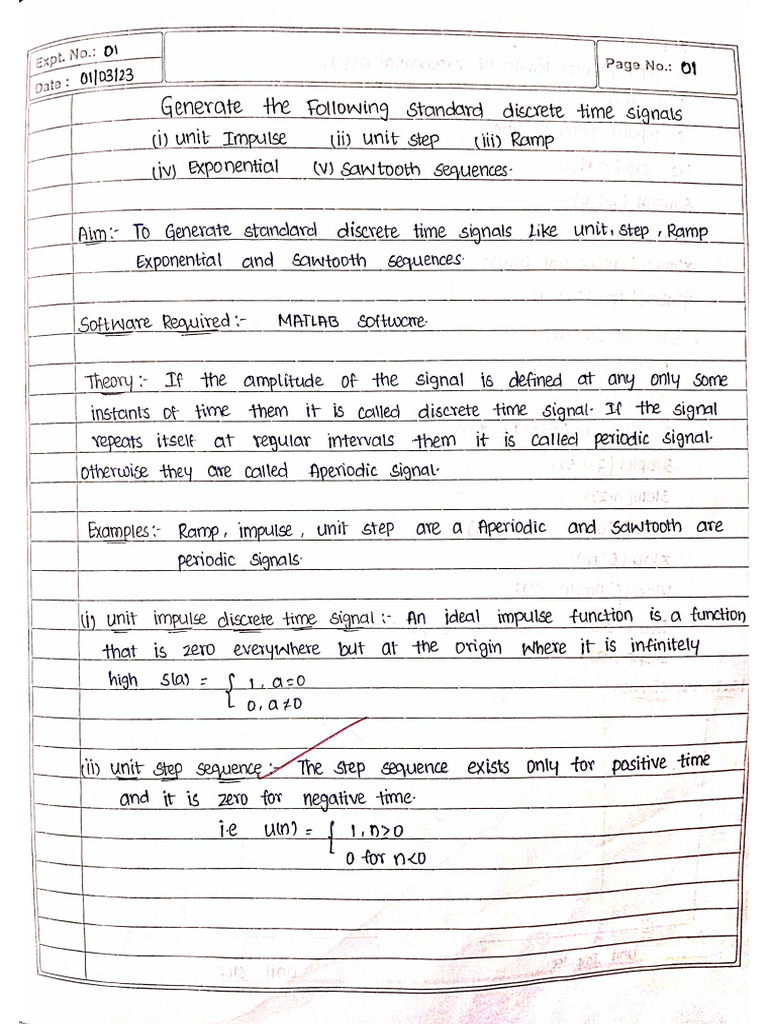 Expt. No.: 01
Date : 01/03/23
Page No.: 01
Generate the Following standard discrete time signals
(i) unit Impulse (ii) unit step (iii) Ramp
(iv) Exponential (v) sawtooth sequences.
Aim:- To Generate standard discrete time signals Like unit, step, Ramp
Exponential and sawtooth sequences.
Software Required:- MATLAB software.
Theory:- If the amplitude of the signal is defined at any only some
instants of time them it is called discrete time signal. If the signal
repeats itself at regular intervals them it is called periodic signal.
otherwise they are called Aperiodic signal.
Examples:- Ramp, impulse, unit step are a Aperiodic and sawtooth are
periodic signals.
(i) unit impulse discrete time signal:- An ideal impulse function is a function
that is zero everywhere but at the origin where it is infinitely
high S(a) = { 1, a=0
0, a≠0
(ii) unit step sequence:- The step sequence exists only for positive time
and it is zero for negative time.
i.e u(n) = { 1, n>0
0 for n<0